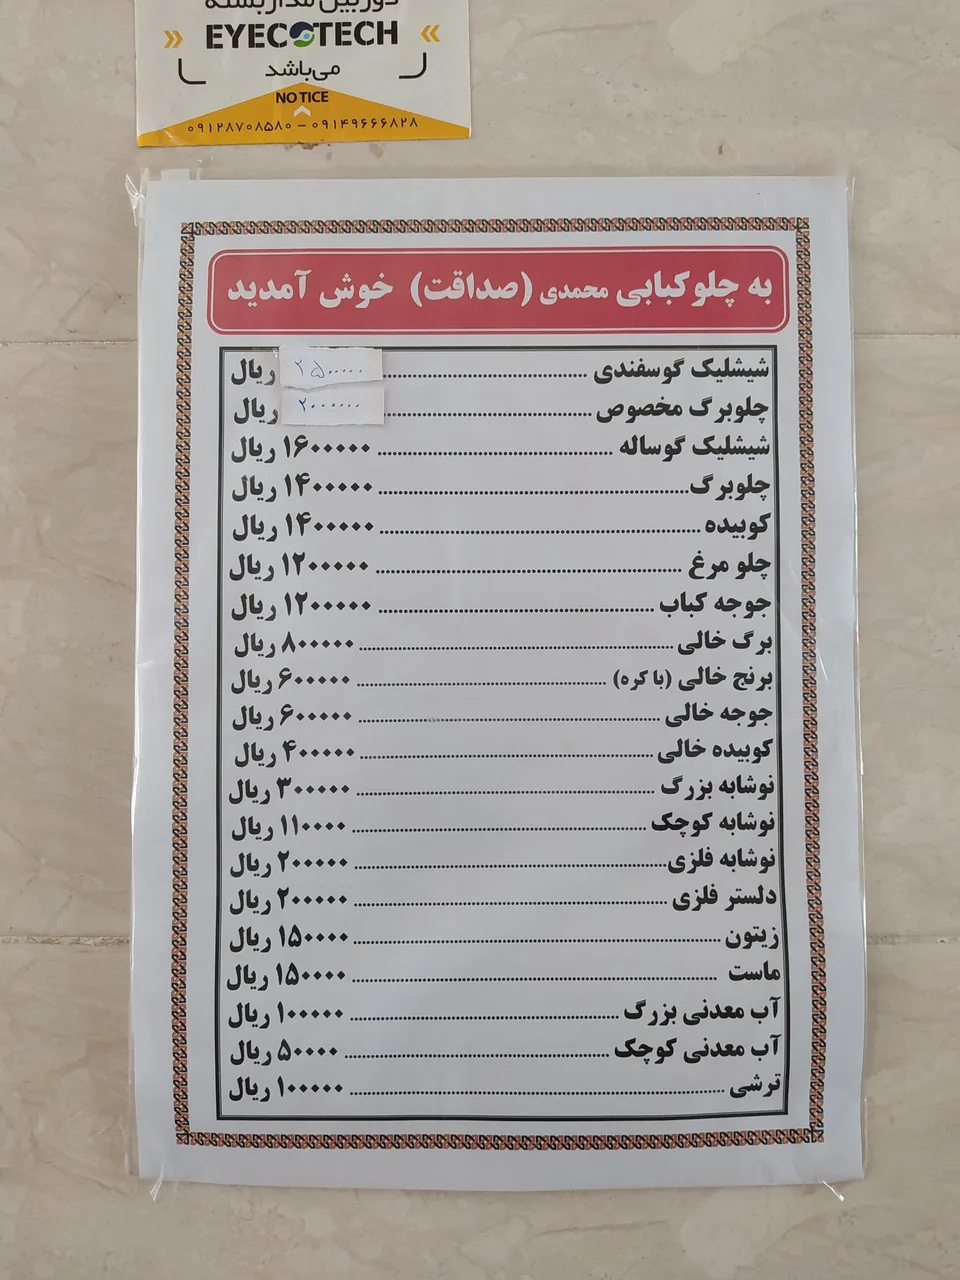 دوربین مداربسته
EYECOTECH
می‌باشد
NOTICE
۰۹۱۲۸۷۰۸۵۸۰ – ۰۹۱۴۹۶۶۶۸۲۸
به چلوکبابی محمدی (صداقت) خوش آمدید
شیشلیک گوسفندی ........ ۲۵۰۰۰۰۰ ریال
چلوبرگ مخصوص ........ ۲۰۰۰۰۰۰ ریال
شیشلیک گوساله ........ ۱۶۰۰۰۰۰ ریال
چلوبرگ ........ ۱۴۰۰۰۰۰ ریال
کوبیده ........ ۱۴۰۰۰۰۰ ریال
چلو مرغ ........ ۱۲۰۰۰۰۰ ریال
جوجه کباب ........ ۱۲۰۰۰۰۰ ریال
برگ خالی ........ ۸۰۰۰۰۰ ریال
برنج خالی (با کره) ........ ۶۰۰۰۰۰ ریال
جوجه خالی ........ ۶۰۰۰۰۰ ریال
کوبیده خالی ........ ۴۰۰۰۰۰ ریال
نوشابه بزرگ ........ ۳۰۰۰۰۰ ریال
نوشابه کوچک ........ ۱۱۰۰۰۰ ریال
نوشابه فلزی ........ ۲۰۰۰۰۰ ریال
دلستر فلزی ........ ۲۰۰۰۰۰ ریال
زیتون ........ ۱۵۰۰۰۰ ریال
ماست ........ ۱۵۰۰۰۰ ریال
آب معدنی بزرگ ........ ۱۰۰۰۰۰ ریال
آب معدنی کوچک ........ ۵۰۰۰۰ ریال
ترشی ........ ۱۰۰۰۰۰ ریال